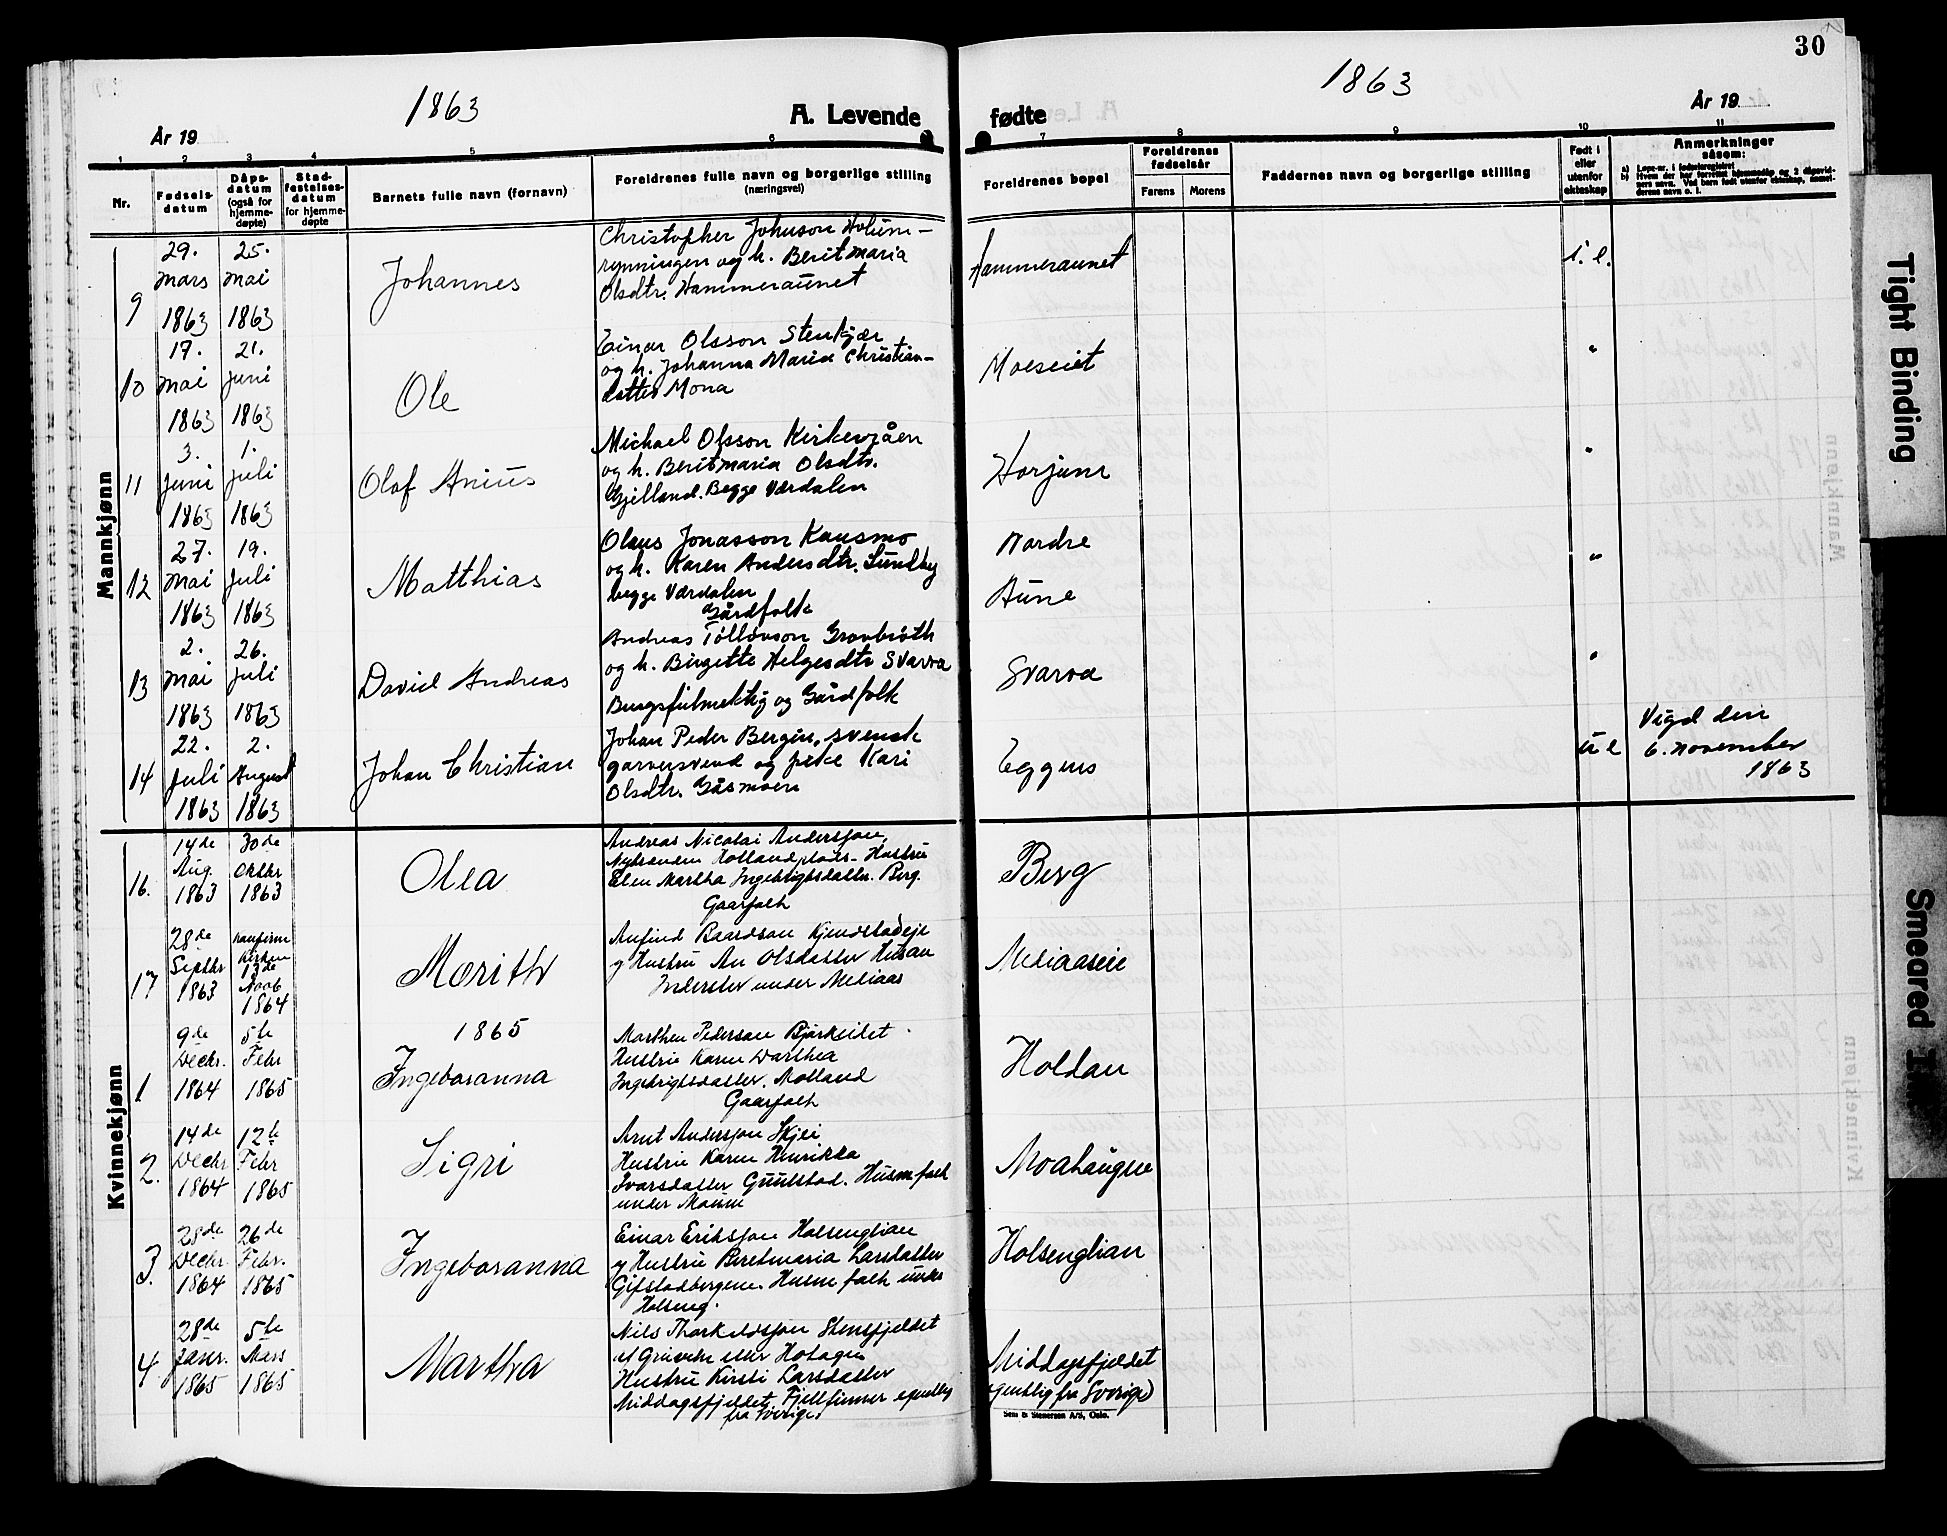 30
1863
1863
År 19
A. Levende
fødte
År 19
1 2 3 4 5 6 7 8 9 10 11
Nr.
Fødsels-
datum
Dåps-
datum
(også for
hjemme-
døpte)
Stad-
festelses-
datum
for hjemme-
døpte
Barnets fulle navn (fornavn)
Foreldrenes fulle navn og borgerlige stilling
(næringsvei)
Foreldrenes bopel
Foreldrenes
fødselsår
Farens Morens
Faddernes navn og borgerlige stilling
Født i
eller
utenfor
ekteskap
Anmerkninger
såsom:
Mannkjønn
9
29.
mars
1863
25.
mai
1863
Johannes
Christopher Johnson Holum-
rynningen og h. Beritmaria
Olsdtr. Hammeraunet
Hammeraunet
i. e.
10
17.
mai
1863
21.
juni
1863
Ole
Einar Olsson Stenkjær
og h. Johanna Maria Christian-
datter Mona
Moeseiet
"
11
3.
juni
1863
1.
juli
1863
Olaf Anius
Michael Olsson Kirkevåen
og h. Beritmaria Olsdtr.
Gjelland. Begge Værdalen
Horjem
"
12
27.
mai
1863
19.
Juli
1863
Matthias
Olaus Jonasson Kausmo
og h. Karen Andersdtr. Sundby
begge Værdalen
Gårdfolk
Nordre
Aune
"
13
2.
mai
1863
26.
juli
1863
David Andreas
Andreas Tollovson Gravbråth
og h. Birgette Helgesdtr Svarva
Brugsfulmektig og Gårdfolk
Svarva
"
14
22.
juli
1863
2.
August
1863
Johan Christian
Johan Peder Bergin, svensk
garversvend og pike Kari
Olsdtr. Gåsmoen
Eggens
u e
Vigd den
6. november
1863
Kvinnekjønn
16.
14de
Aug.
1863
30de
Oktbr
1863
Olea
Andreas Nicolai Anderssen,
Hollandplads- Hustru
Elen Martha Ingebrigtsdatter. Berg.
Gaarfolk
Berg
17
28de
Septbr
1863
Kirken
13de
Marts
1864
Morith
Anfind Baardsen Kjendstadeje
g Hustru An Olsdatter Husan
Inderster under Mediaas
Mediaaseie
1865
1
9de
Decbr.
1864
5te
Febr
1865
Ingeboranna
Marthen Pedersen Bjørkeidet
Hustru Karen Darthea
Ingebrigtsdatter. Molland
Gaarfolk
Holdan
2.
14de
Decbr
1864
12te
Febr
1865
Sigri
Arnt Anderssen Skjei
Hustru Karen Henrikka
Ivarsdatter Guulstad. Husmfolk
under Mauen
Moahaugen
3.
28de
Decbr.
1864
26de
Febr.
1865
Ingeboranna
Einar Erikssen Holsenglian
g Hustru Beretmaria Larsdatter
Gifstadbergene. Husmfolk under
Holseng.
Holsenglian
4.
28de
Janr.
1865
5te
Mars
1865
Martha
Nils Thorkildssen Stensfjeldet
af Gruveln eller Hotagen
Hustru Kirsti Larsdatter
Middagsfjeldet. Fjellfinner egentlig
fra Sverige.
Middagsfjeldet
(egentlig fra Sverige)
Sem & Stenersen A/S, Oslo.
Tight Binding
Smeared Ink